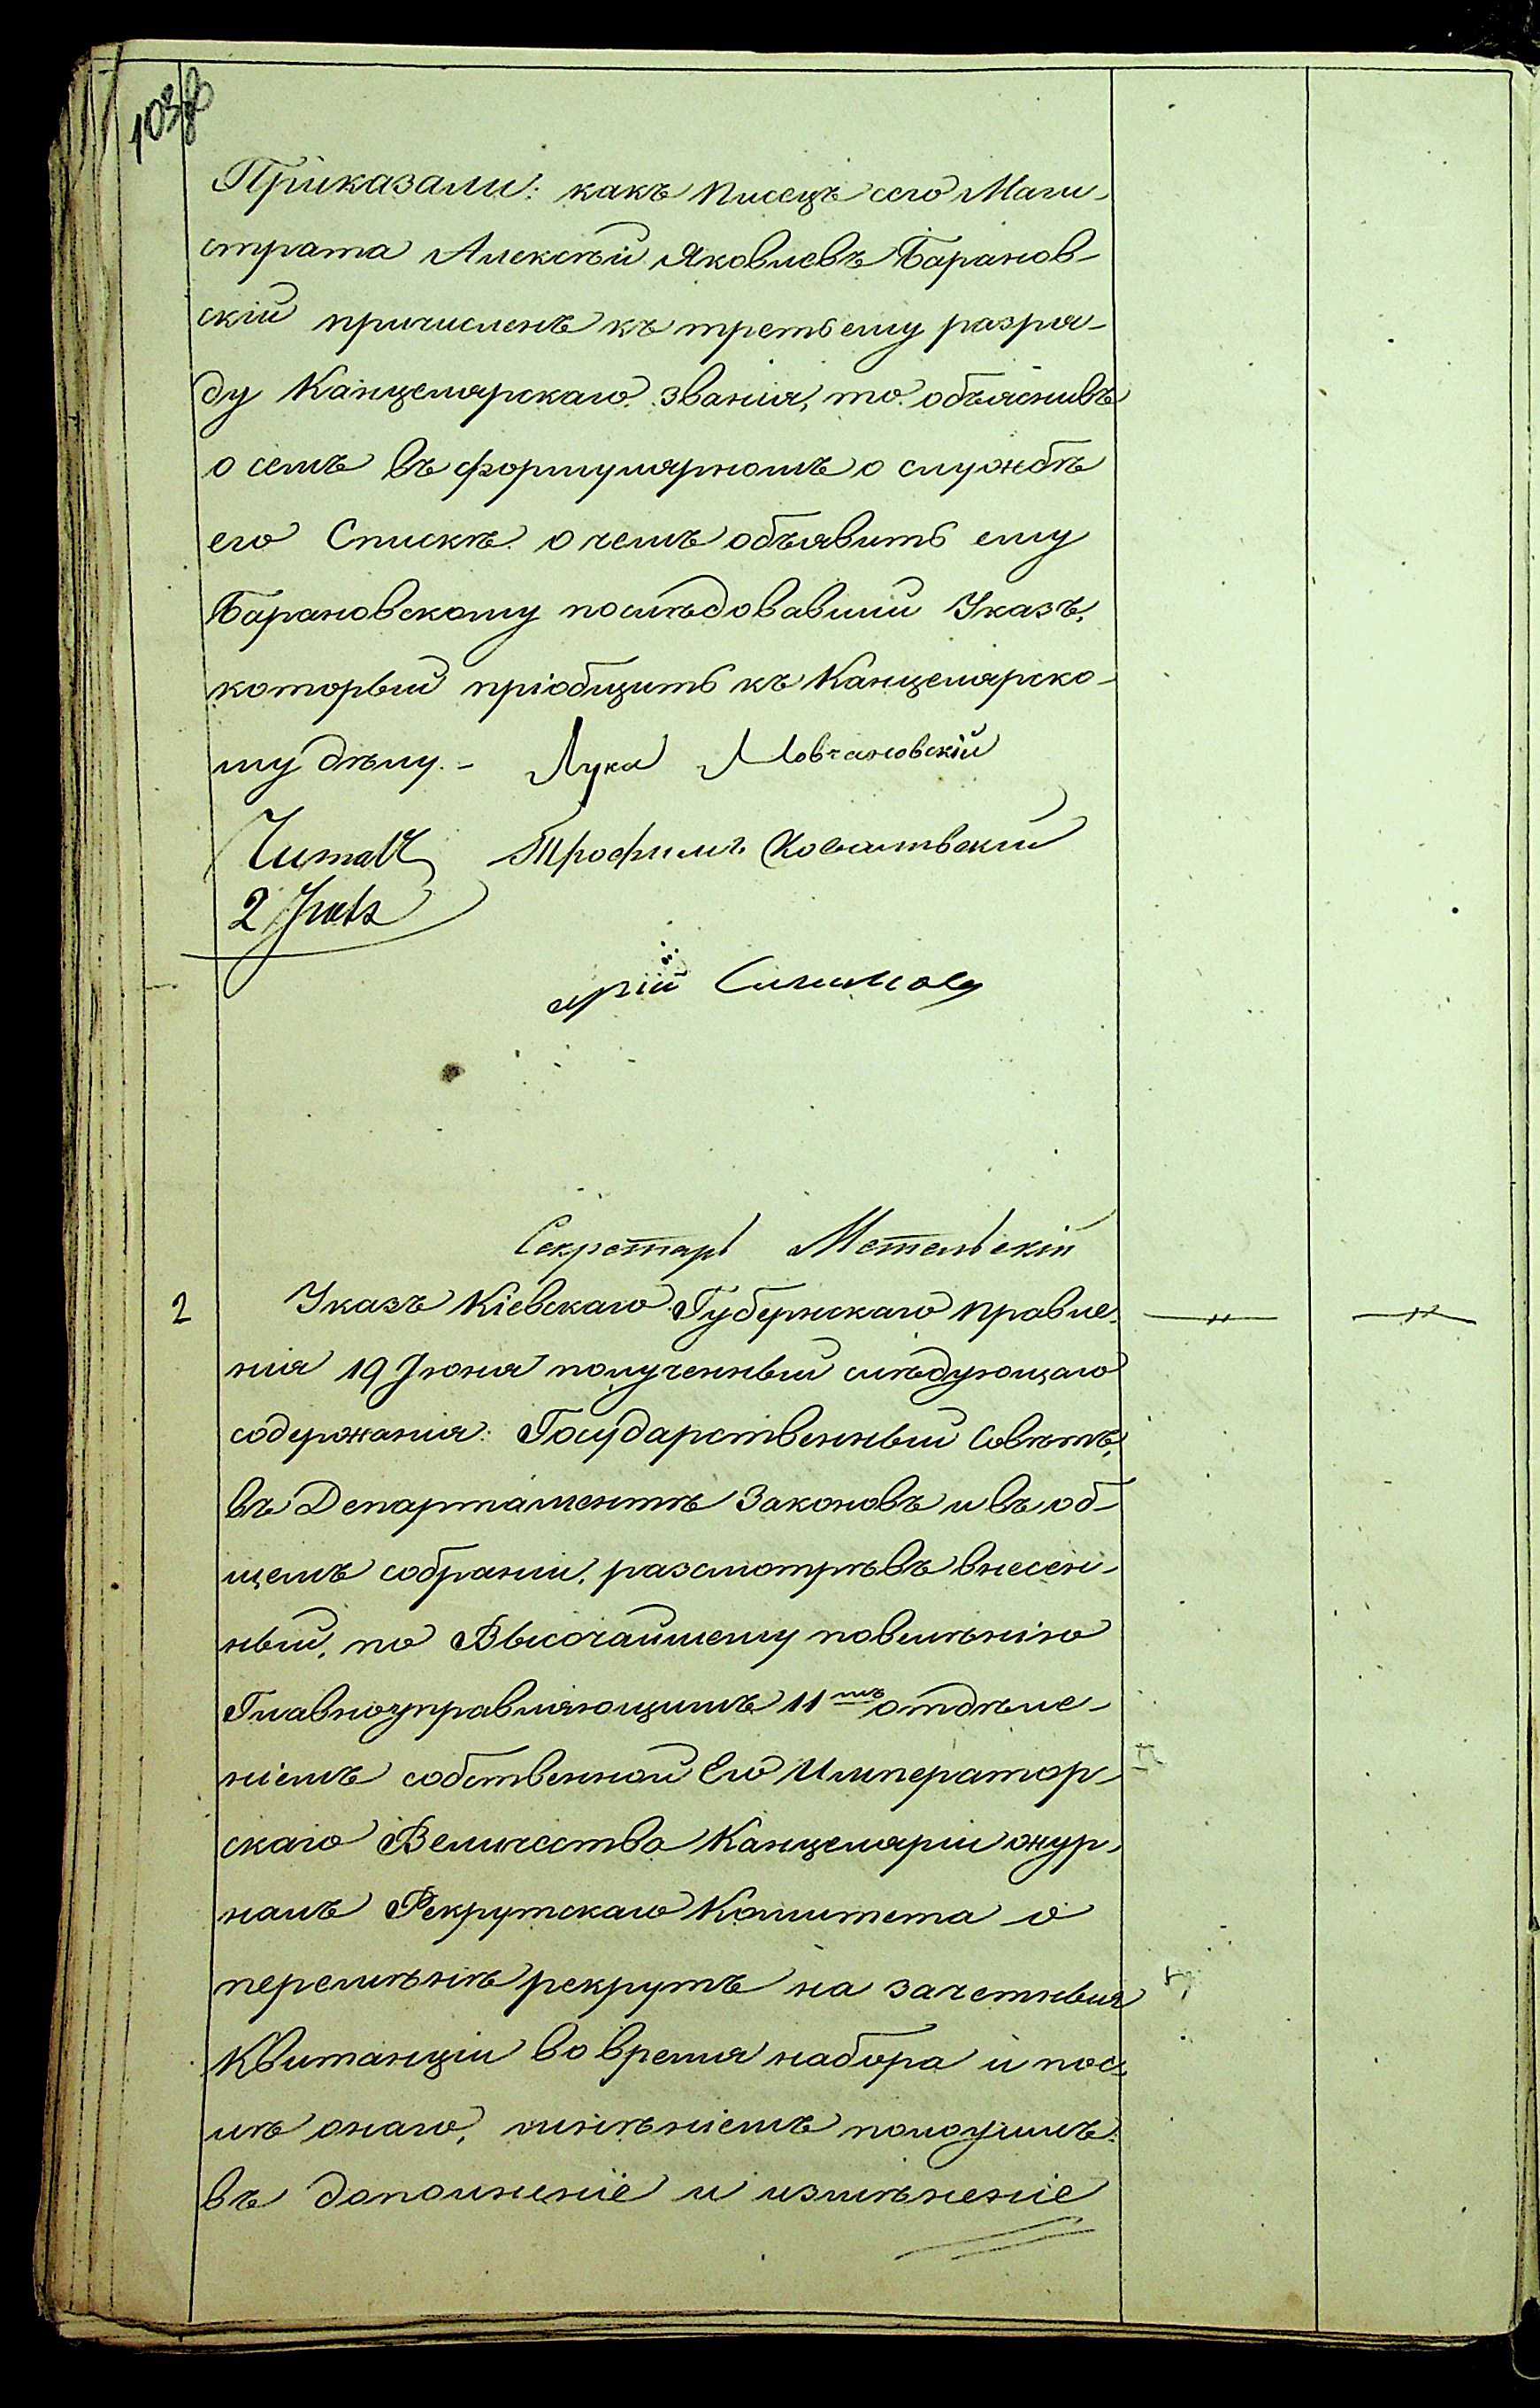 Приказали: какъ писецъ сего Маги-
страта Алексѣй Яковлевъ Баранов-
скій причисленъ къ третьему разря-
ду Канцелярскаго званія, то объяснивъ
о семъ въ формулярномъ о службѣ
его Спискѣ о чемъ объявить ему
Барановскому послѣдовавшій Указъ,
который пріобщить къ Канцелярско-
му дѣлу.- Лука Мовчановскій
Читалъ Трофимъ
2
Секретарь Метельскій
2 Указъ Кіевскаго Губернскаго правле-
нія 19 Іюня полученный слѣдующаго
содержанія: Государственный Совѣтъ,
въ Департаментѣ Законовъ и въ об-
щемъ собраніи, разсмотрѣвъ внесен-
ный, по Высочайшему повелѣнію
Главноуправляющимъ 11мъ отдѣле-
ніемъ собственной Его Император-
скаго Величества Канцеляріи жур-
налъ Рекрутскаго Комитета о
перемѣнѣ рекрутъ на зачетныя
Квитанціи во время набора и пос-
лѣ онаго, мнѣніемъ положилъ:
въ дополненіе и измѣненіе